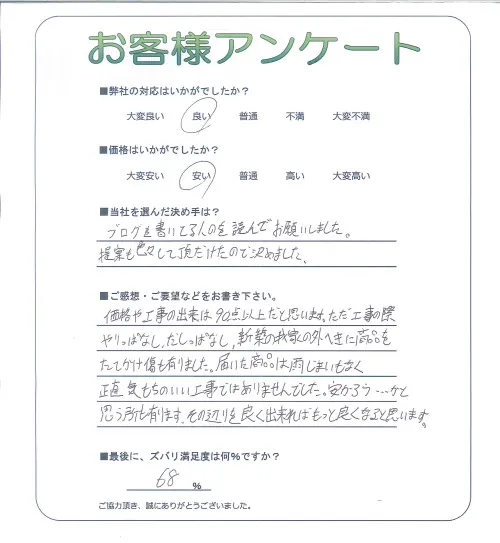 お客様アンケート
■弊社の対応はいかがでしたか?
大変良い 良い 普通 不満 大変不満
■価格はいかがでしたか?
大変安い 安い 普通 高い 大変高い
■当社を選んだ決め手は?
ブログを書いてる人のを読んでお願いしました。
提案も色々して頂だけたので決めました、
■ご感想・ご要望などをお書き下さい。
価格や工事の出来は90点以上だと思います。ただ工事の際
やりっぱなし、だしっぱなし、新築の我家の外へきに商品を
たてかけ傷も有りました。届いた商品は雨じまいもなく
正直気もちのいい工事ではありませんでした。安かろう…かと
思う所も有ります、その辺りを良く出来ればもっと良くなると思います。
■最後に、ズバリ満足度は何%ですか?
68 %
ご協力頂き、誠にありがとうございました。